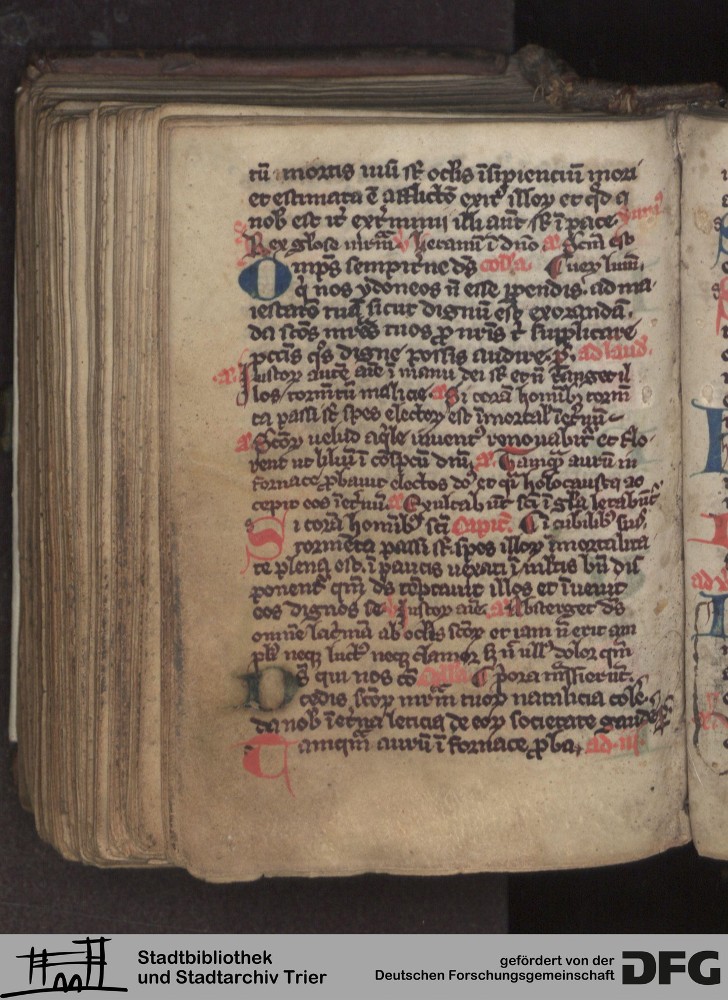 tū mortis visi sūt oclis īsipienciū mori
et estimata ē afflictō exitˀ illoꝝ et qd a
nob est itˀ extˀminii illi aūt sūt ī pace
Rex gloīse mrm̄ letamī ī dn̄o Scm̄ est
Omps sempitˀne ds̄ colla
qi nos ydoneos n̄ esse ꝑpendis ad ma
iestatē tuā sicut dignū est exoranda
da scōs mr̄es tuos ꝓ nr̄is t̄ supplicare
pccīs qs̄ digne possis audire p ad laud
Iustoꝝ autē aīe ī manu dei sūt et n̄ tanget il
los tormtū malicie Si corā homībȝ torm̄
ta passi sūt spes electoꝝ est īmortal īetnū
Scōꝝ velud aqˀle iuventˀ renovabitˀ et flo
rent ut liliū ī cōspcū dn̄i Tamqȝ aurū in
fornace ꝓbavit electos do et qˀ holocausta ac
cepit eos īetnū Exultabūt scī ī gla letabūt
Si corā homībȝ scī Capit I cubilibȝ suis
tormēta passi sūt spes illoꝝ īmortalita
te plena est ī paucis vexati ī multis bn̄ dis
ponentˀ qm̄ ds̄ tēptavit illos et īvenit
eos dignos se Iustoꝝ aīe Absterget ds̄
omnē lacˀmā ab oclis scōꝝ et iam n̄ erit am
plˀ neqȝ luctˀ neqȝ clamor sȝ n̄ ullˀ dolor qm̄
Ds̄ qui nos cō colla pora nssierūt
cedis scōꝝ mr̄m tuoꝝ natalicia cole
da nob ī etˀna leticia de eoꝝ societate gaude
Tamqm̄ aurū ī fornace ꝓba ad iii
Stadtbibliothek
und Stadtarchiv Trier
gefördert von der
Deutschen Forschungsgemeinschaft
DFG